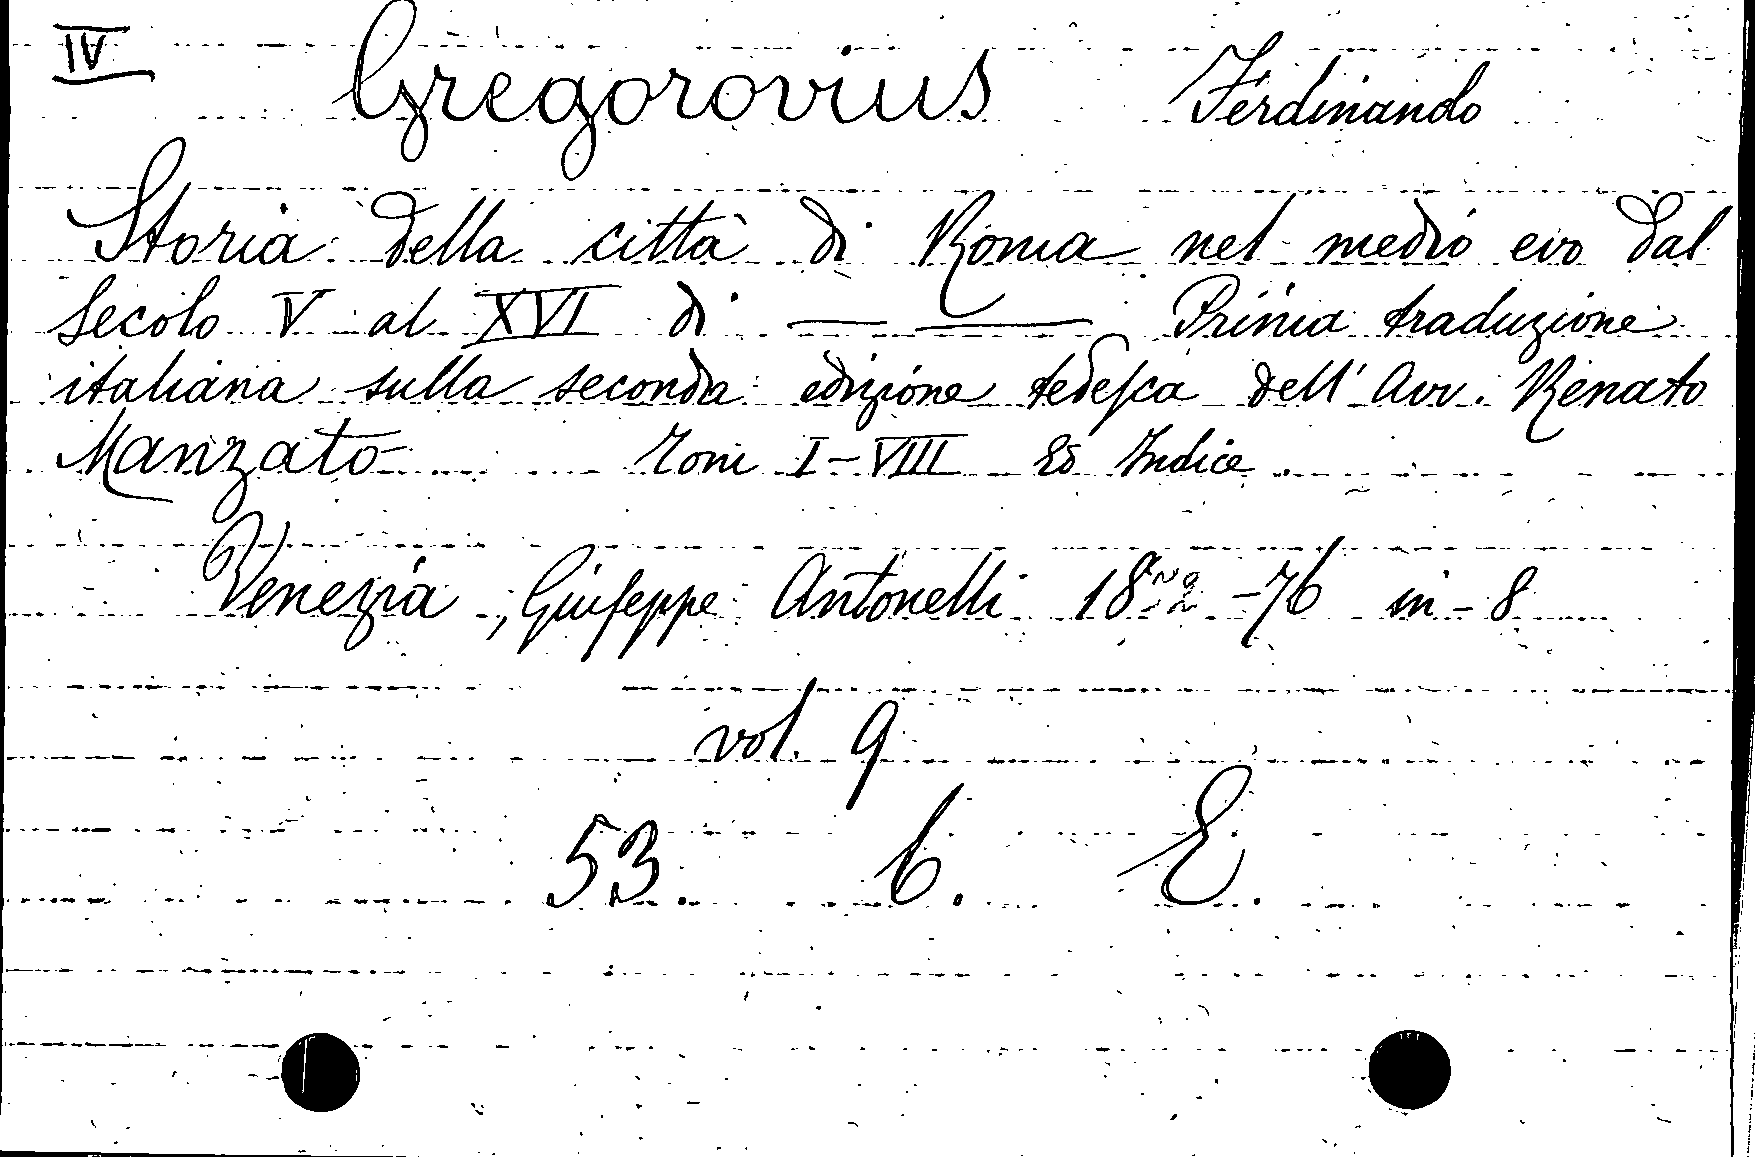 IV
Gregorovius Ferdinando
Storia della città di Roma nel medio evo dal
secolo V al XVI di — — Prima traduzione
italiana sulla seconda edizione tedesca dell' Avv. Renato
Manzato Tomi I-VIII Ed Indice
Venezia, Giuseppe Antonelli 1872-76 in-8
vol. 9
53. 6. E.